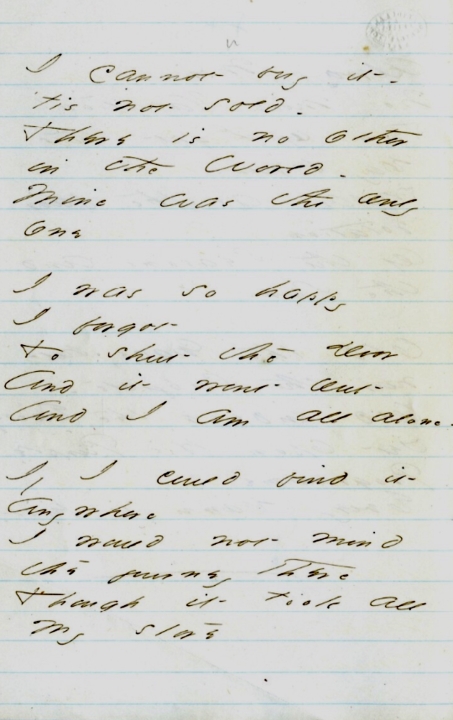 I cannot buy it -
'tis not sold -
There is no other
in the World -
Mine was the only
one

I was so happy
I forgot
To shut the Door
And it went out
And I am all alone -

If I could find it
Anywhere
I would not mind
the journey there
Though it took all
my store